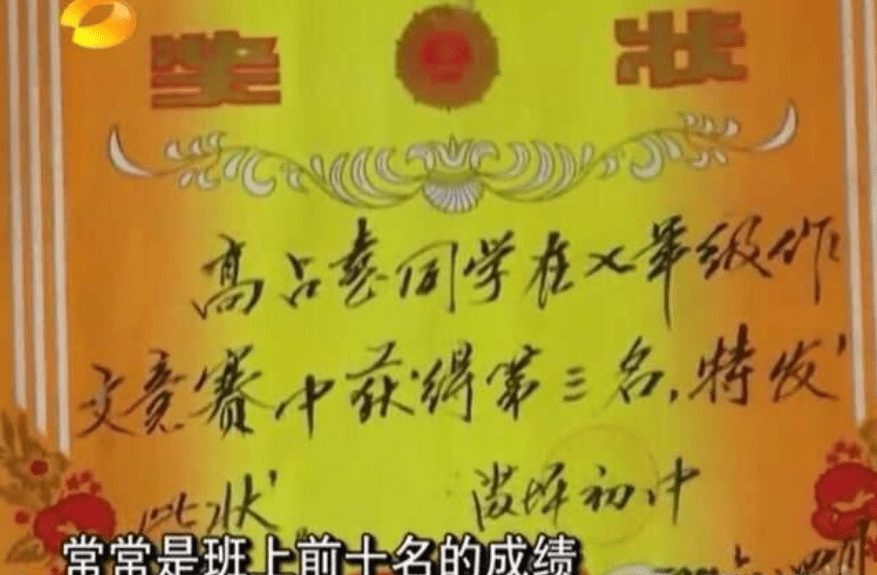 奖状
高占喜同学在七年级作
文竞赛中获得第三名,特发
此状
初中
常常是班上前十名的成绩